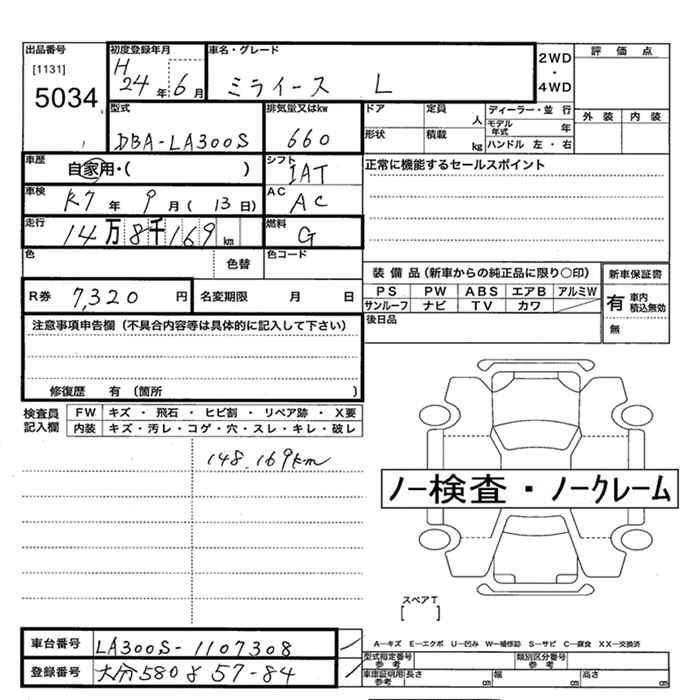 出品番号
[1131]
5034
初度登録年月
H
24年6月
車名・グレード
ミライース L
2WD
・
4WD
評価点
外装 内装
型式
DBA-LA300S
排気量又はkw
660
ドア 定員 人
形状 積載 kg
ディーラー・並 行
モデル年式 年
ハンドル 左・右
車歴
自家用・( )
シフト
IAT
正常に機能するセールスポイント
車検
R7年9月(13日)
AC
AC
走行
14万8千169km
燃料
G
色 色替
色コード
R券 7,320 円
名変期限 月 日
装備品(新車からの純正品に限り○印)
PS PW ABS エアB アルミW
サンルーフ ナビ TV カワ
後日品
新車保証書
有 車内積込無効
無
注意事項申告欄(不具合内容等は具体的に記入して下さい)
修復歴 有 〔箇所 〕
検査員記入欄
FW キズ・飛石・ヒビ割・リペア跡・X要
内装 キズ・汚レ・コゲ・穴・スレ・キレ・破レ
148.169km
ノー検査・ノークレーム
スペアT
[ ]
車台番号 LA300S-1107308
登録番号 大分580よ57-84
A-キズ E-エクボ U-凹み W-補修跡 S-サビ C-腐食 XX-交換済
型式指定番号 参考
類別区分番号 参考
車庫証明用 参考 長さ cm 幅 cm 高さ cm